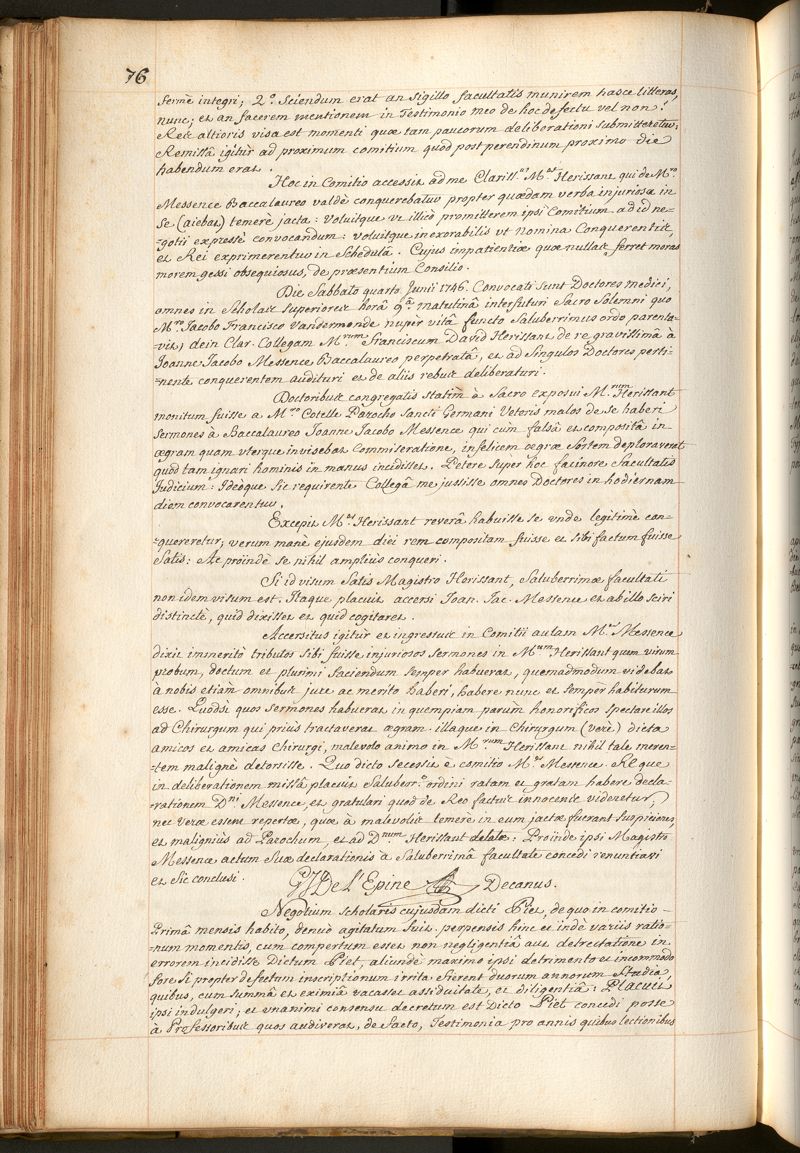 76
fermè integri; 2.° Sciendum erat an sigillo facultatis munirem hasce litteras,
nunc; et an facerem mentionem in Testimonio meo de hoc defectu vel non?
Res altioris visa est momenti quæ tam paucorum deliberationi submitteretur;
Remissâ igitur ad proximum comitium quod post perendinum proximo die
habendum erat.
Hoc in Comitio accessit ad me Clariss.us M.er Herissant qui de M.ro
Messence Baccalaureo valdè conquerebatur propter quædam verba injuriosa in
se (aiebat) temerè jacta: Voluitque ut illicò promitterem ipsi Comitium ad id ne=
=gotii expressè convocandum: voluitque inexorabilis ut nomina Conquerentis,
et Rei exprimerentur in Schedulâ. Cujus impatientiæ quæ nullas ferret moras
morem gessi obsequiosus, de præsentium Consilio.
Die Sabbato quarto Junii 1746. Convocati sunt Doctores medici,
omnes in Scholas Superiores horâ 9.â matutinâ interfuturi Sacro Solemni quo
M.ro Jacobo Francisco Vandermonde nupèr vitâ functo Saluberrimus ordo parenta-
vit, dein Clar. Collegam M.rum Franciscum David Herissant de re gravissimâ à
Joanne Jacobo Messence Baccalaureo perpetratâ, et ad Singulos Doctores perti-
=nente conquerentem audituri et de aliis rebus deliberaturi.
Doctoribus congregatis statìm è Sacro exposui M.rum Herissant
monitum fuisse a M.ro Cotelle Parocho Sancti Germani Veteris malos de se haberi
sermones à Baccalaureo Joanne Jacobo Messence qui cum falsâ et compositâ in
ægram quam uterque invisebat Commiseratione, infelicem ægræ Sortem deploraverat
quod tam ignari hominis in manus incidisset. Petere super hoc facinore facultatis
Judicium: Ideoque sic requirente Collegâ me jussisse omnes Doctores in hodiernam
diem convocarentur.
Excepit M.er Herissant reverâ habuisse se unde legitimè con-
=quereretur; verum manè ejusdem diei rem compositam fuisse et sibi factum fuisse
Satis: Ac proindè se nihil ampliùs conqueri.
Si id visum Satis Magistro Herissant, Saluberrimæ facultati
non idem visum est. Itaque placuit accersi Joan. Jac. Messence et ab illo sciri
distinctè, quid dixisset et quid cogitaret.
Accersitus igitur et ingressus in Comitii aulam M.er Messence
dixit immeritò tributos sibi fuisse injuriosos sermones in M.rum Herissant quem virum
probum, doctum et plurimi faciendum semper habuerat, quemadmodum videbat
à nobis etiam omnibus jure ac merito haberi, habere nunc et semper habiturum
esse. Quodsi quos sermones habuerat in quempiam parùm honorificos spectare illos
ad Chirurgum qui priùs tractaverat ægram. illaque in Chirurgum (verè) dicta
amicos et amicas Chirurgi, malevolo animo in M.rum Herissant nihil tale meren-
=tem malignè detorsisse. Quo dicto secessit è comitio M.er Messence. Re que
in deliberationem missâ placuit Saluberr.o ordini ratam et gratam habere decla-
-rationem D.ni Messence, et gratulari quod de Reo factus innocens videretur,
nec veræ essent repertæ, quæ à malevolis temerè in eum jactæ fuerant suspiciones,
et maligniùs ad Parochum, et ad D.num Herissant delatæ: Proinde ipsi Magistro
Messence actum suæ declarationis à Saluberrimâ facultate concedi renuntiavi
et sic conclusi. GJ De l'Epine Decanus.
Negotium scholaris cujusdam dicti Piet, de quo in comitio -
Primâ mensis habito, denuò agitatum fuit. perpensis hinc et indè variis ratio-
=num momentis, cum compertum esset non negligentiâ aut detrectatione in
errorem incidisse Dictum Piet, aliundè maximo ipsi detrimento et incommodo
fore si propter defectum inscriptionum irrita fierent duorum annorum studia,
quibus, cum summâ et eximiâ vacasset assiduitate, et diligentiâ: Placuit
ipsi indulgeri; et unanimi consensu decretum est Dicto Piet concedi posse
à Professoribus quos audiverat, de facto, Testimonia pro annis quibus lectionibus